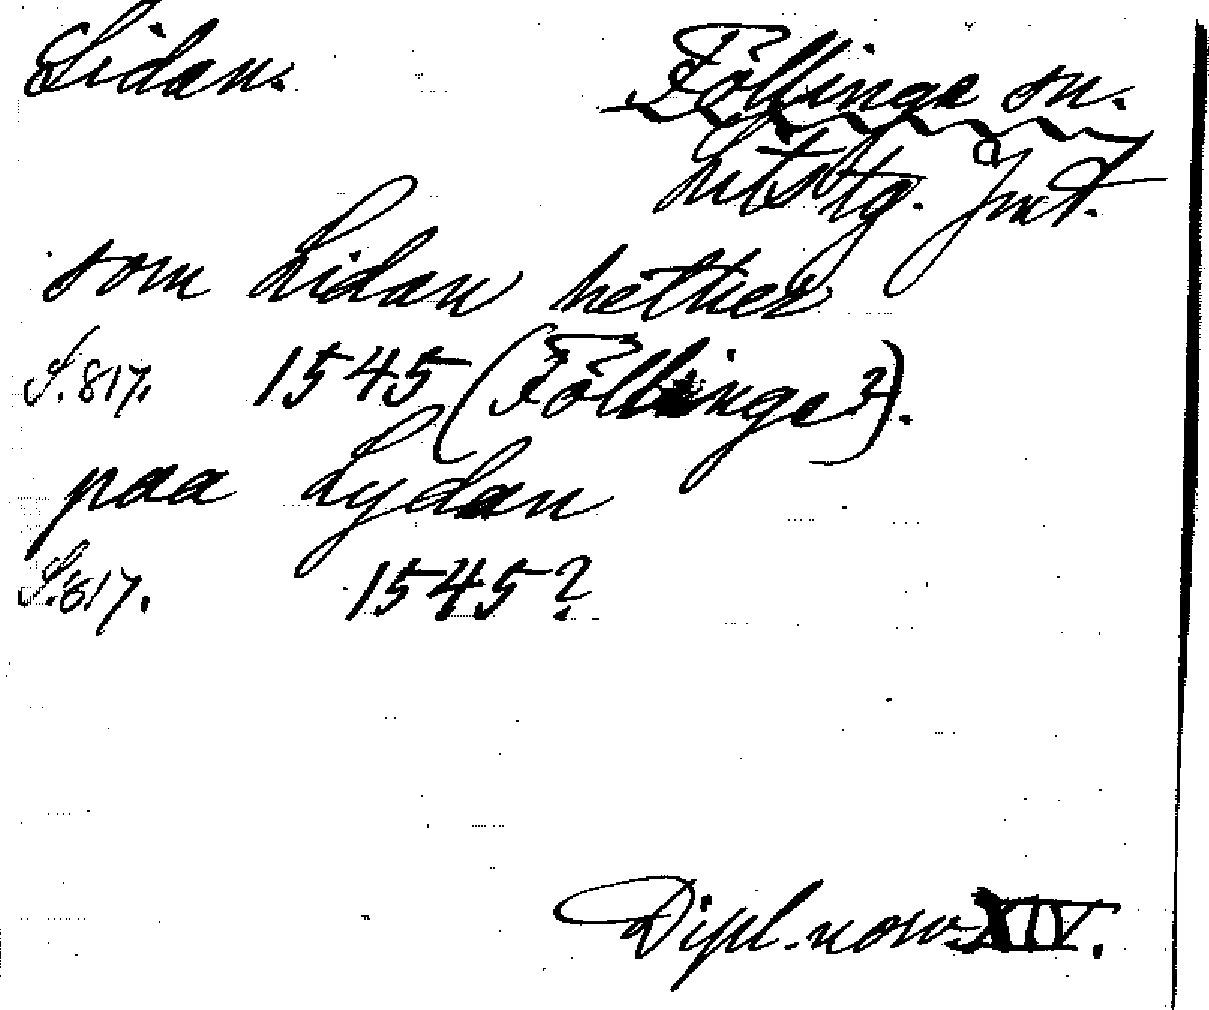 Lidan. Föllinge sn.
Lits tg. Jmt.
som Lidan hether
S. 817. 1545 (Föllinge?).
paa Lydan
S. 817. 1545?
Dipl. norv. XIV.